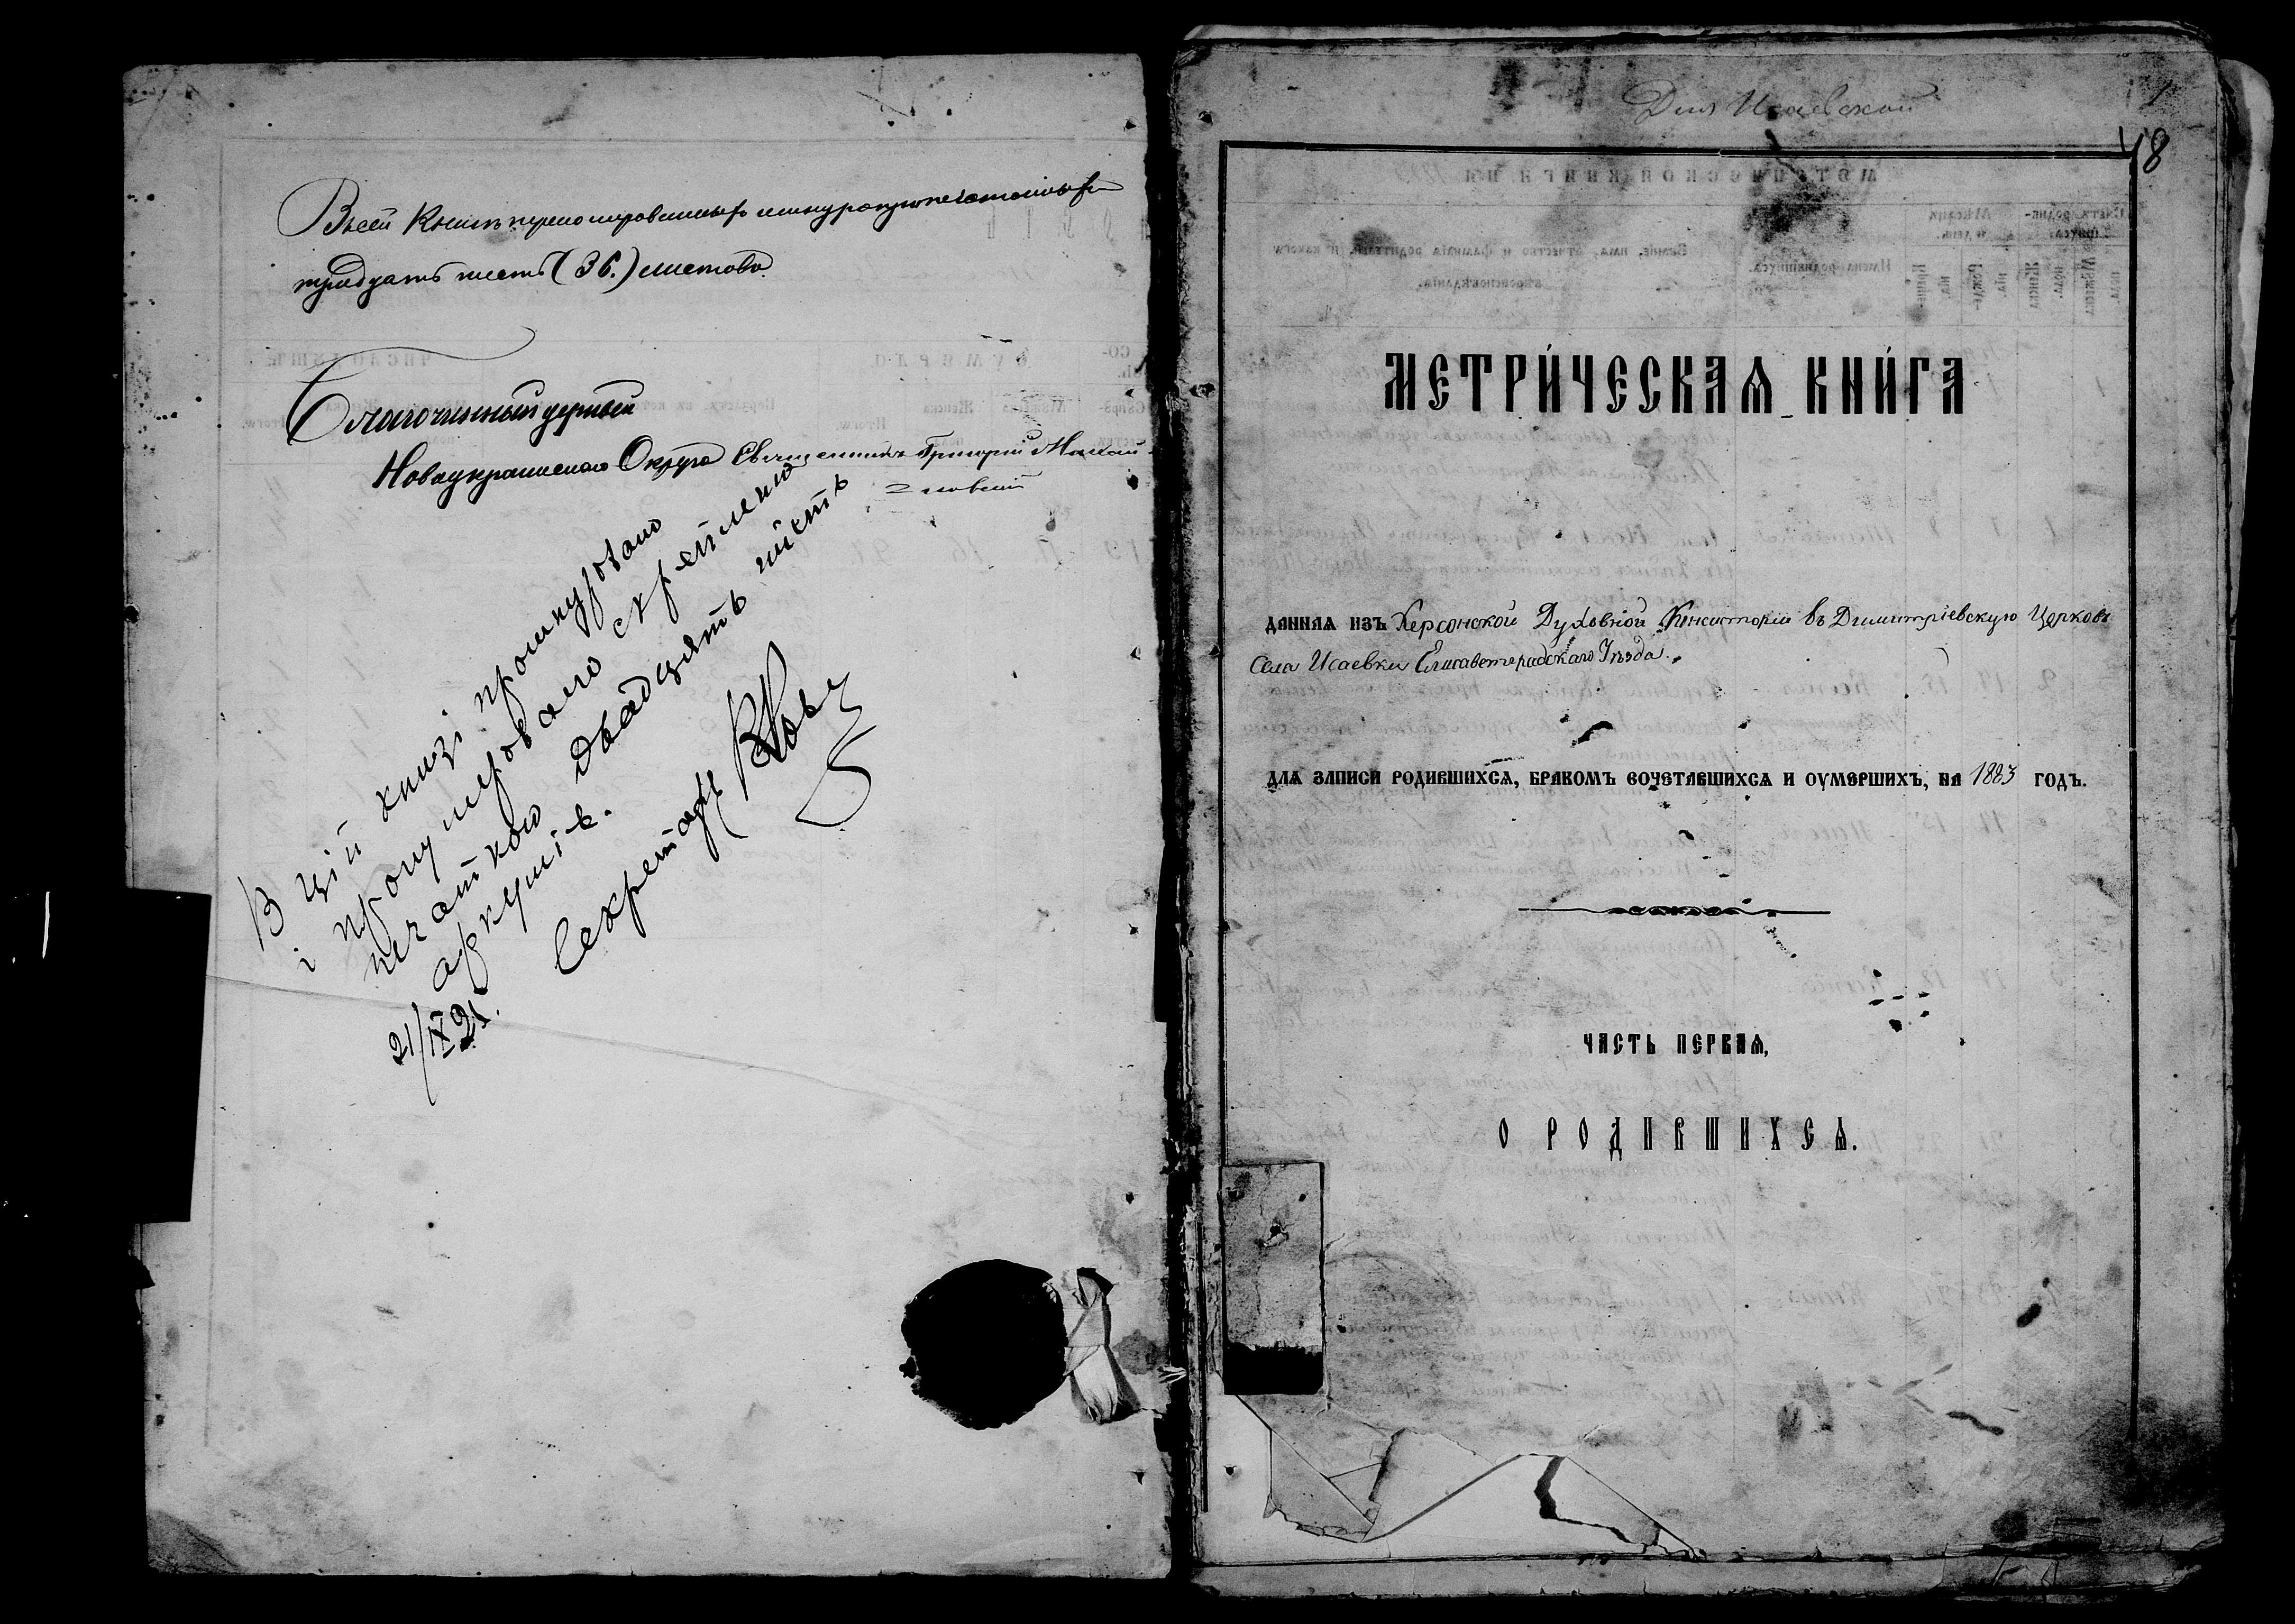 Всей Книгѣ перенумерованныхъ шнуроприпечатанныхъ
тридцать шесть (36.) листовъ.
Благочинный церквей
Новоукраинскаго Округа Священникъ Григорій
В цій книзі прошнуровано
і пронумеровано скреплено
печаткою двадцять шість
аркушів.
Секретарь
21/IX 21.
Для Исаевской
1
48
МЕТРИ́ЧЕСКАѦ КНИ́ГА
ДАННАѦ ИЗЪ Херсонской Духовной Консисторіи въ Димитріевскую Церковь
Села Исаевки Елисаветградскаго Уѣзда.
ДЛѦ ЗАПИСИ РОДИВШИХСѦ, БРАКОМЪ СОЧЕТАВШИХСѦ И ОУМЕРШИХЪ, НА 1883 ГОДЪ.
ЧАСТЬ ПЕРВАѦ,
О РОДИВШИХСѦ.